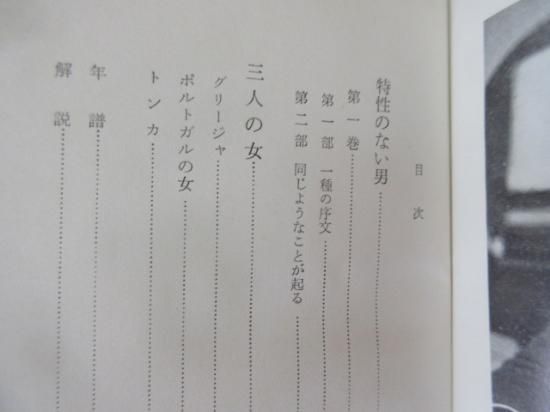 目次
特性のない男
第一巻
第一部 一種の序文
第二部 同じようなことが起る
三人の女
グリージャ
ポルトガルの女
トンカ
年譜
解説